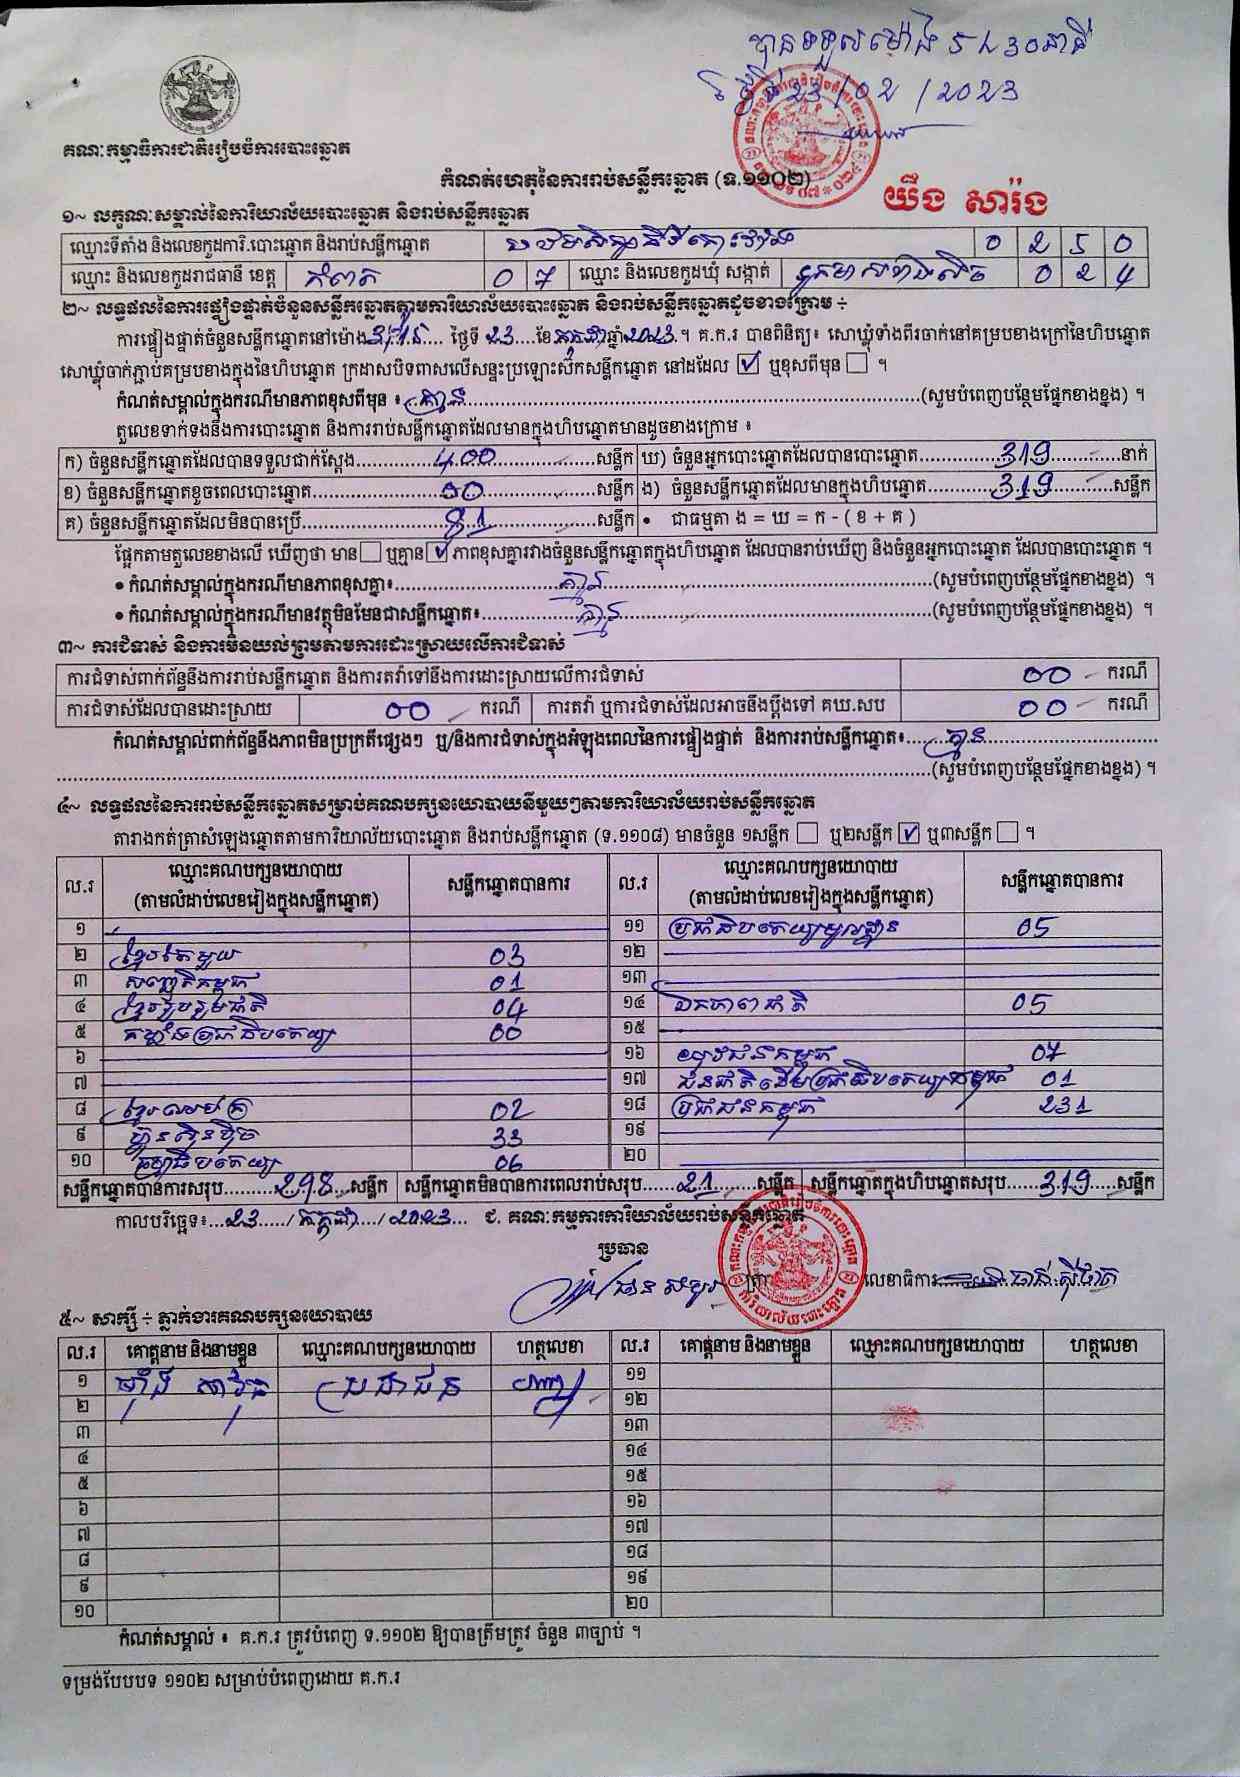 បានទទួលម៉ោង 5 h 30 នាទី
ថ្ងៃទី 23/02/2023
គណៈកម្មាធិការជាតិរៀបចំការបោះឆ្នោត
កំណត់ហេតុនៃការរាប់សន្លឹកឆ្នោត (ទ.១១០២)
យឹង សារ៉ង
១~ លក្ខណៈសម្គាល់នៃការិយាល័យបោះឆ្នោត និងរាប់សន្លឹកឆ្នោត
ឈ្មោះទីតាំង និងលេខកូដការិ.បោះឆ្នោត និងរាប់សន្លឹកឆ្នោត 0 2 5 0
ឈ្មោះ និងលេខកូដរាជធានី ខេត្ត កំពត 0 7 ឈ្មោះ និងលេខកូដឃុំ សង្កាត់ 0 2 4
២~ លទ្ធផលនៃការផ្ទៀងផ្ទាត់ចំនួនសន្លឹកឆ្នោតតាមការិយាល័យបោះឆ្នោត និងរាប់សន្លឹកឆ្នោតដូចខាងក្រោម ÷
ការផ្ទៀងផ្ទាត់ចំនួនសន្លឹកឆ្នោតនៅម៉ោង.... ថ្ងៃទី 23....ខែកក្កដាឆ្នាំ2023.។ គ.ក.រ បានពិនិត្យ៖ សោឃ្លុំទាំងពីរចាក់នៅគម្របខាងក្រៅនៃហិបឆ្នោត
សោឃ្លុំចាក់ភ្ជាប់គម្របខាងក្នុងនៃហិបឆ្នោត ក្រដាសបិទពាសលើសន្ទះប្រឡោះស៊កសន្លឹកឆ្នោត នៅដដែល ☑ ឬខុសពីមុន ☐ ។
កំណត់សម្គាល់ក្នុងករណីមានភាពខុសពីមុន ៖ គ្មាន (សូមបំពេញបន្ថែមផ្នែកខាងខ្នង) ។
តួលេខទាក់ទងនឹងការបោះឆ្នោត និងការរាប់សន្លឹកឆ្នោតដែលមានក្នុងហិបឆ្នោតមានដូចខាងក្រោម ៖
ក) ចំនួនសន្លឹកឆ្នោតដែលបានទទួលជាក់ស្ដែង 400 សន្លឹក ឃ) ចំនួនអ្នកបោះឆ្នោតដែលបានបោះឆ្នោត 319 នាក់
ខ) ចំនួនសន្លឹកឆ្នោតខូចពេលបោះឆ្នោត 00 សន្លឹក ង) ចំនួនសន្លឹកឆ្នោតដែលមានក្នុងហិបឆ្នោត 319 សន្លឹក
គ) ចំនួនសន្លឹកឆ្នោតដែលមិនបានប្រើ 81 សន្លឹក • ជាធម្មតា ង = ឃ = ក - ( ខ + គ )
ផ្អែកតាមតួលេខខាងលើ ឃើញថា មាន ☐ ឬគ្មាន ☑ ភាពខុសគ្នារវាងចំនួនសន្លឹកឆ្នោតក្នុងហិបឆ្នោត ដែលបានរាប់ឃើញ និងចំនួនអ្នកបោះឆ្នោត ដែលបានបោះឆ្នោត ។
• កំណត់សម្គាល់ក្នុងករណីមានភាពខុសគ្នា៖ គ្មាន (សូមបំពេញបន្ថែមផ្នែកខាងខ្នង) ។
• កំណត់សម្គាល់ក្នុងករណីមានវត្ថុមិនមែនជាសន្លឹកឆ្នោត៖ គ្មាន (សូមបំពេញបន្ថែមផ្នែកខាងខ្នង) ។
៣~ ការជំទាស់ និងការមិនយល់ព្រមតាមការដោះស្រាយលើការជំទាស់
ការជំទាស់ពាក់ព័ន្ធនឹងការរាប់សន្លឹកឆ្នោត និងការតវ៉ាទៅនឹងការដោះស្រាយលើការជំទាស់ 00 ករណី
ការជំទាស់ដែលបានដោះស្រាយ 00 ករណី ការតវ៉ា ឬការជំទាស់ដែលអាចនឹងប្ដឹងទៅ គឃ.សប 00 ករណី
កំណត់សម្គាល់ពាក់ព័ន្ធនឹងភាពមិនប្រក្រតីផ្សេងៗ ឬ/និងការជំទាស់ក្នុងអំឡុងពេលនៃការផ្ទៀងផ្ទាត់ និងការរាប់សន្លឹកឆ្នោត៖ គ្មាន
(សូមបំពេញបន្ថែមផ្នែកខាងខ្នង) ។
៤~ លទ្ធផលនៃការរាប់សន្លឹកឆ្នោតសម្រាប់គណបក្សនយោបាយនីមួយៗតាមការិយាល័យរាប់សន្លឹកឆ្នោត
តារាងកត់ត្រាសំឡេងឆ្នោតតាមការិយាល័យបោះឆ្នោត និងរាប់សន្លឹកឆ្នោត (ទ.១១០៨) មានចំនួន ១សន្លឹក ☐ ឬ២សន្លឹក ☑ ឬ៣សន្លឹក ☐ ។
ល.រ ឈ្មោះគណបក្សនយោបាយ សន្លឹកឆ្នោតបានការ ល.រ ឈ្មោះគណបក្សនយោបាយ សន្លឹកឆ្នោតបានការ
(តាមលំដាប់លេខរៀងក្នុងសន្លឹកឆ្នោត) (តាមលំដាប់លេខរៀងក្នុងសន្លឹកឆ្នោត)
១ ១១ ប្រជាធិបតេយ្យមូលដ្ឋាន 05
២ ខ្មែរតែមួយ 03 ១២
៣ សញ្ជាតិកម្ពុជា 01 ១៣
៤ ខ្មែររួបរួមជាតិ 04 ១៤ ឯកភាពជាតិ 05
៥ កម្លាំងប្រជាធិបតេយ្យ 00 ១៥
៦ ១៦ យុវជនកម្ពុជា 07
៧ ១៧ ជនជាតិដើមប្រជាធិបតេយ្យកម្ពុជា 01
៨ ខ្មែរអភិរក្ស 02 ១៨ ប្រជាជនកម្ពុជា 231
៩ ហ៊្វុនស៊ិនប៉ិច 33 ១៩
១០ ធម្មាធិបតេយ្យ 06 ២០
សន្លឹកឆ្នោតបានការសរុប 298 សន្លឹក សន្លឹកឆ្នោតមិនបានការពេលរាប់សរុប 21 សន្លឹក សន្លឹកឆ្នោតក្នុងហិបឆ្នោតសរុប 319 សន្លឹក
កាលបរិច្ឆេទ៖ 23 / កក្កដា / 2023 ជ. គណៈកម្មការការិយាល័យរាប់សន្លឹកឆ្នោត
ប្រធាន
លេខាធិការ
៥~ សាក្សី ÷ ភ្នាក់ងារគណបក្សនយោបាយ
ល.រ គោត្តនាម និងនាមខ្លួន ឈ្មោះគណបក្សនយោបាយ ហត្ថលេខា ល.រ គោត្តនាម និងនាមខ្លួន ឈ្មោះគណបក្សនយោបាយ ហត្ថលេខា
១ ប្រជាជន ១១
២ ១២
៣ ១៣
៤ ១៤
៥ ១៥
៦ ១៦
៧ ១៧
៨ ១៨
៩ ១៩
១០ ២០
កំណត់សម្គាល់ ៖ គ.ក.រ ត្រូវបំពេញ ទ.១១០២ ឱ្យបានត្រឹមត្រូវ ចំនួន ៣ច្បាប់ ។
ទម្រង់បែបបទ ១១០២ សម្រាប់បំពេញដោយ គ.ក.រ